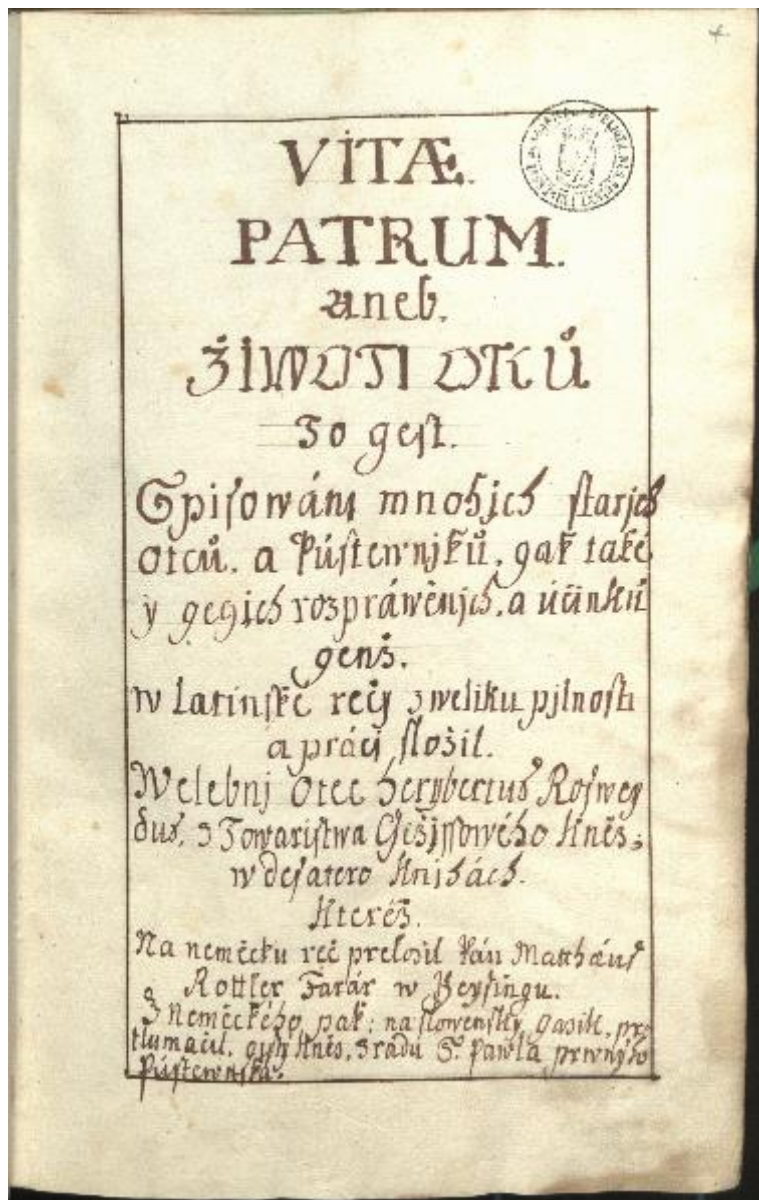 4.
VITÆ.
PATRUM.
aneb.
ŽIWOTI OTCŮ
To gest.
Spisowáni mnohjch starjch
Otců. a Pústewnjků. gak také
y gegich rozpráwěnjch. a účinků
genž.
w Latinské rečy z weliku pjlnosti
a práci složil.
Welebnj Otec Herybertus Roswey
dus, z Towaristwa Gežjssowého Kněz,
w desatero Knihách.
Kteréž.
Na nemčcku reč preložil Pán Matthæus
Rottler Farár w
Z Nemčckého pak: na slowensky Gazik. pre
tlumačil. Kněs. z radu S. Pawla prwnjho
Pústewnjka.